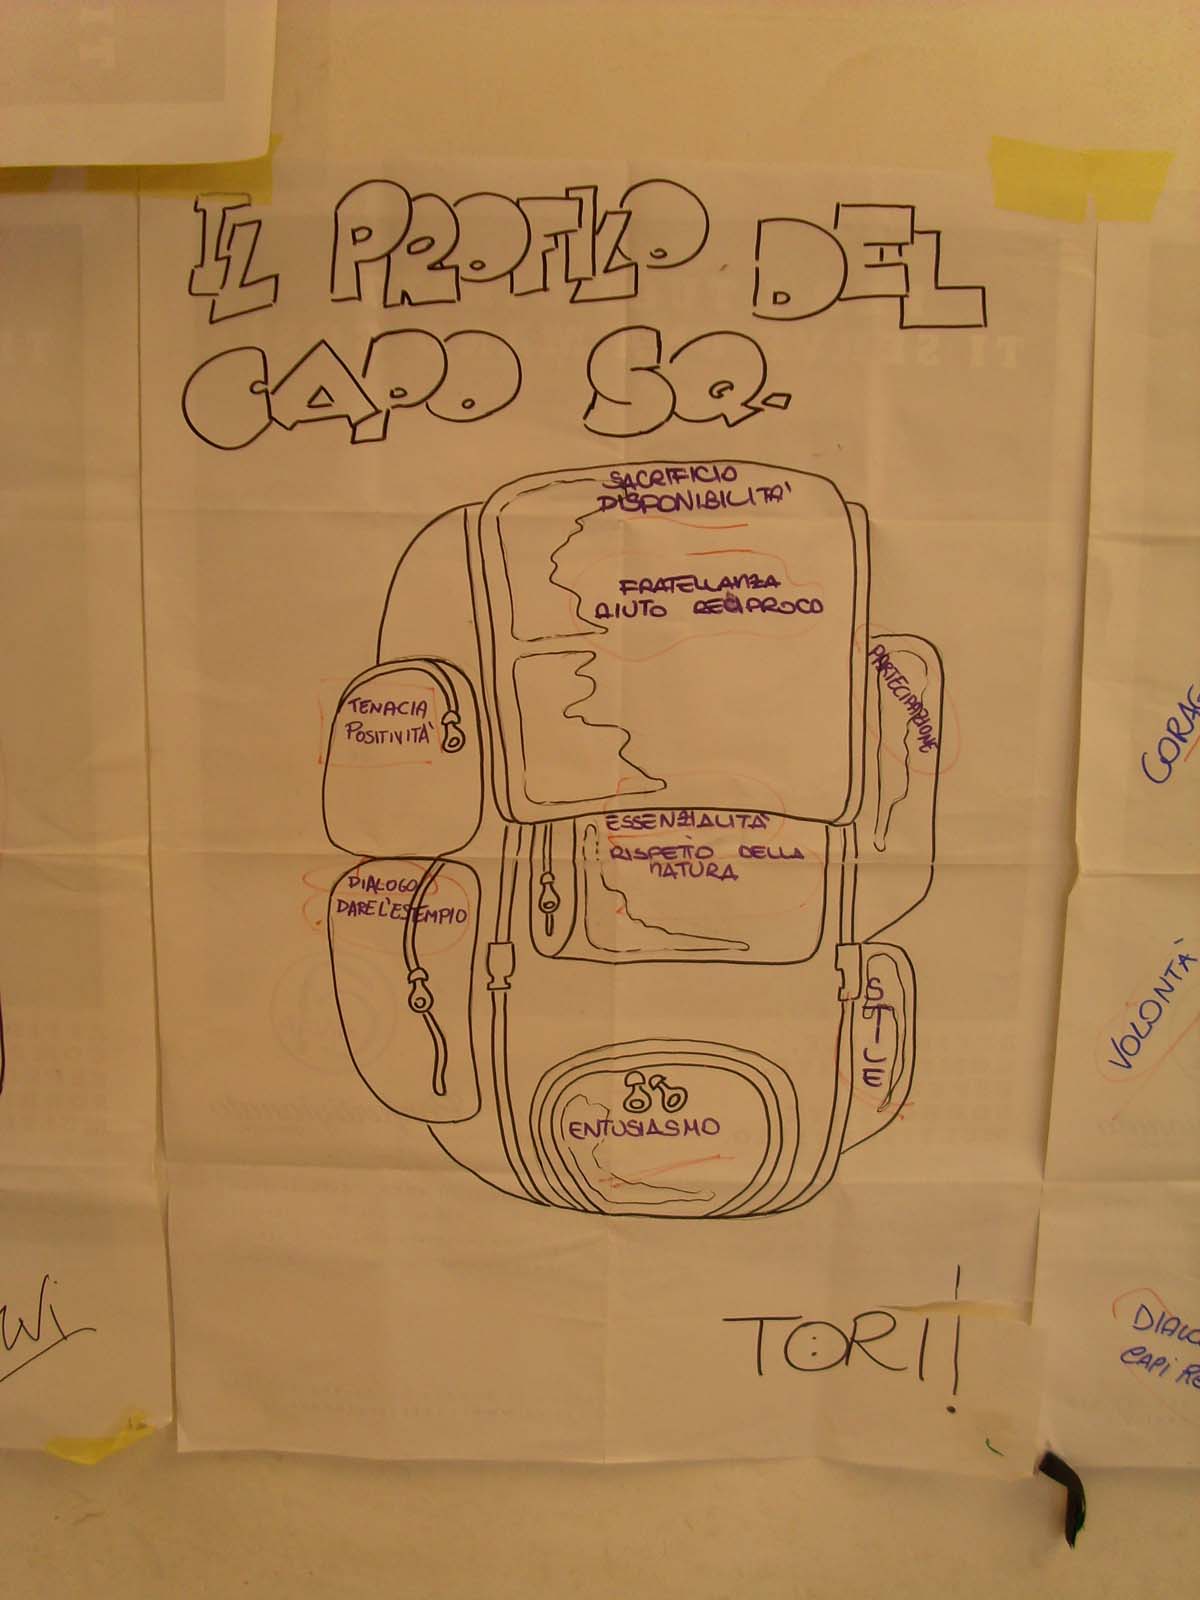 IL PROFILO DEL
CAPO SQ.
SACRIFICIO
DISPONIBILITA'
FRATELLANZA
AIUTO RECIPROCO
PARTECIPAZIONE
TENACIA
POSITIVITA'
ESSENZIALITÀ
RISPETTO DELLA
NATURA
DIALOGO
DARE L'ESEMPIO
STILE
ENTUSIASMO
TORI!
VOLONTÀ
CAPI